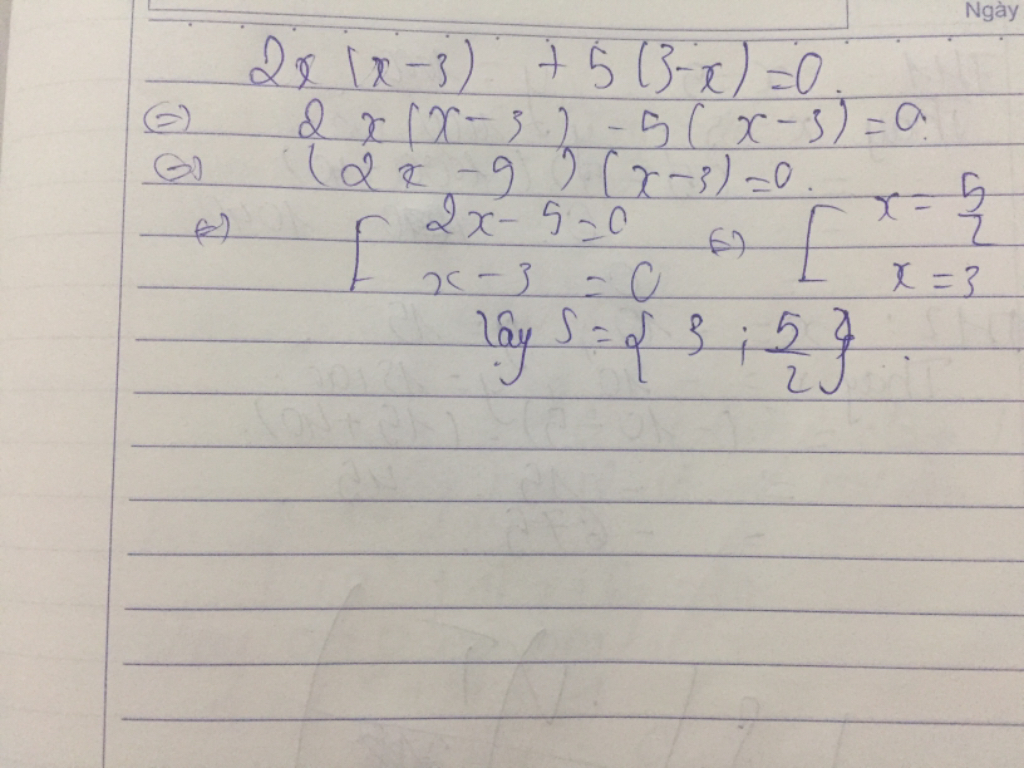 Ngày
2x(x-3) + 5(3-x)=0.
(=) 2x(x-3) - 5(x-3)=0.
(=) (2x-9)(x-3)=0.
(=) [ 2x-5=0 (=) [ x = 5/2
x-3 = 0 x = 3
Vậy S = { 3 ; 5/2 }.